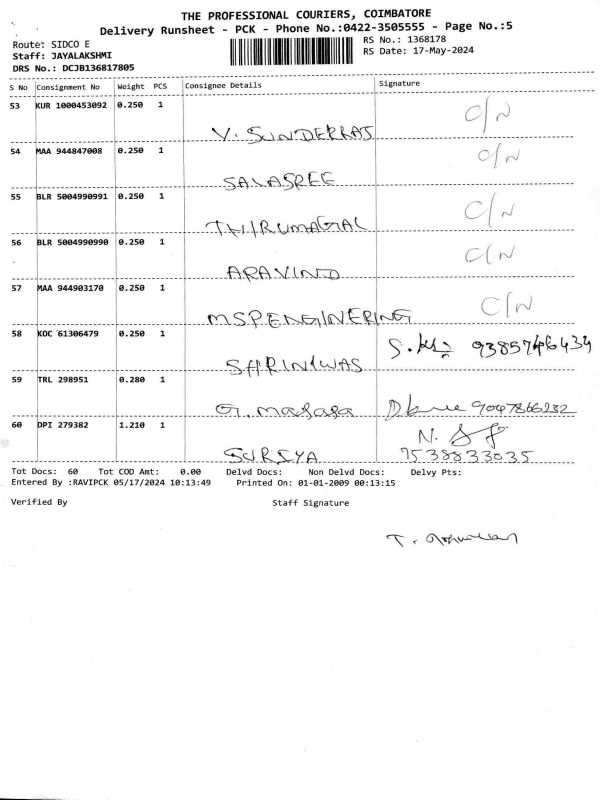 THE PROFESSIONAL COURIERS, COIMBATORE
Delivery Runsheet - PCK - Phone No.:0422-3505555 - Page No.:5
Route: SIDCO E
RS No.: 1368178
Staff: JAYALAKSHMI
RS Date: 17-May-2024
DRS No.: DCJB136817805
S No Consignment No Weight PCS Consignee Details Signature
53 KUR 1000453092 0.250 1 C/N
V. SUNDERRAJ
54 MAA 944847008 0.250 1 C/N
SALASREE
55 BLR 5004990991 0.250 1 C/N
THIRUMAGAL
56 BLR 5004990990 0.250 1 C/N
ARAVIND
57 MAA 944903170 0.250 1 C/N
MSPENGINVERING
58 KOC 61306479 0.250 1
SHRINIWAS
59 TRL 298951 0.280 1
9047866232
60 DPI 279382 1.210 1 N.
SURIYA 7538833035
Tot Docs: 60 Tot COD Amt: 0.00 Delvd Docs: Non Delvd Docs: Delvy Pts:
Entered By :RAVIPCK 05/17/2024 10:13:49 Printed On: 01-01-2009 00:13:15
Verified By Staff Signature